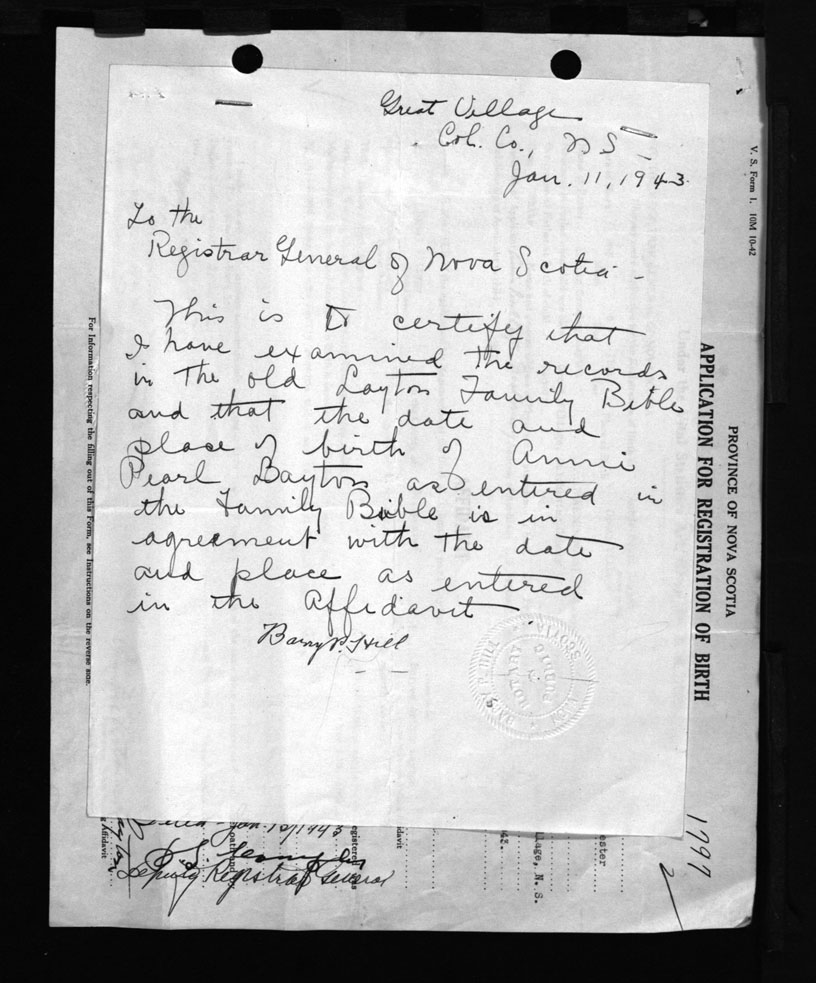 Great Village
Col. Co., N S -
Jan. 11, 1943.
To the
Registrar General of Nova Scotia -
This is to certify that
I have examined the records
in The old Layton Family Bible
and that the date and
place of birth of Annie
Pearl Layton as entered in
the Family Bible is in
agreement with the date
and place as entered
in the Affidavit.
Barry P. Hill
NOTARY PUBLIC
NOVA SCOTIA
V. S. Form 1. 10M 10-42
PROVINCE OF NOVA SCOTIA
APPLICATION FOR REGISTRATION OF BIRTH
1797
2
For Information respecting the filling out of this Form, see Instructions on the reverse side.
Jan. 13/1943
Deputy Registrar General
ester
llage, N. S.
43.
davit
Affidavit